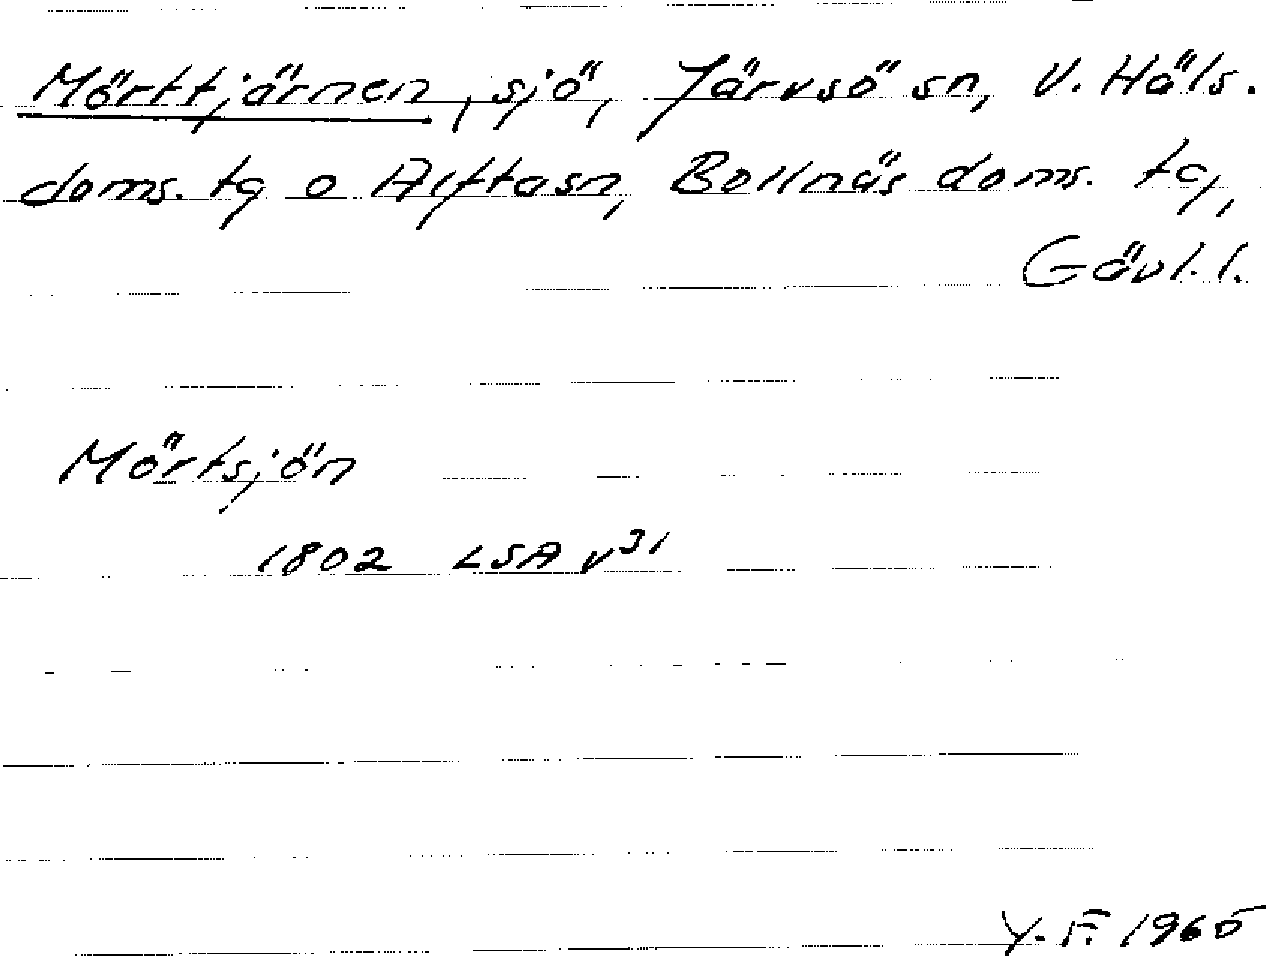 Mörttjärnen, sjö, Järvsö sn, V. Häls.
doms. tg o Alfta sn, Bollnäs doms. tg,
Gävl. l.
Mörtsjön
1802 LSA v³¹
Y. F. 1965